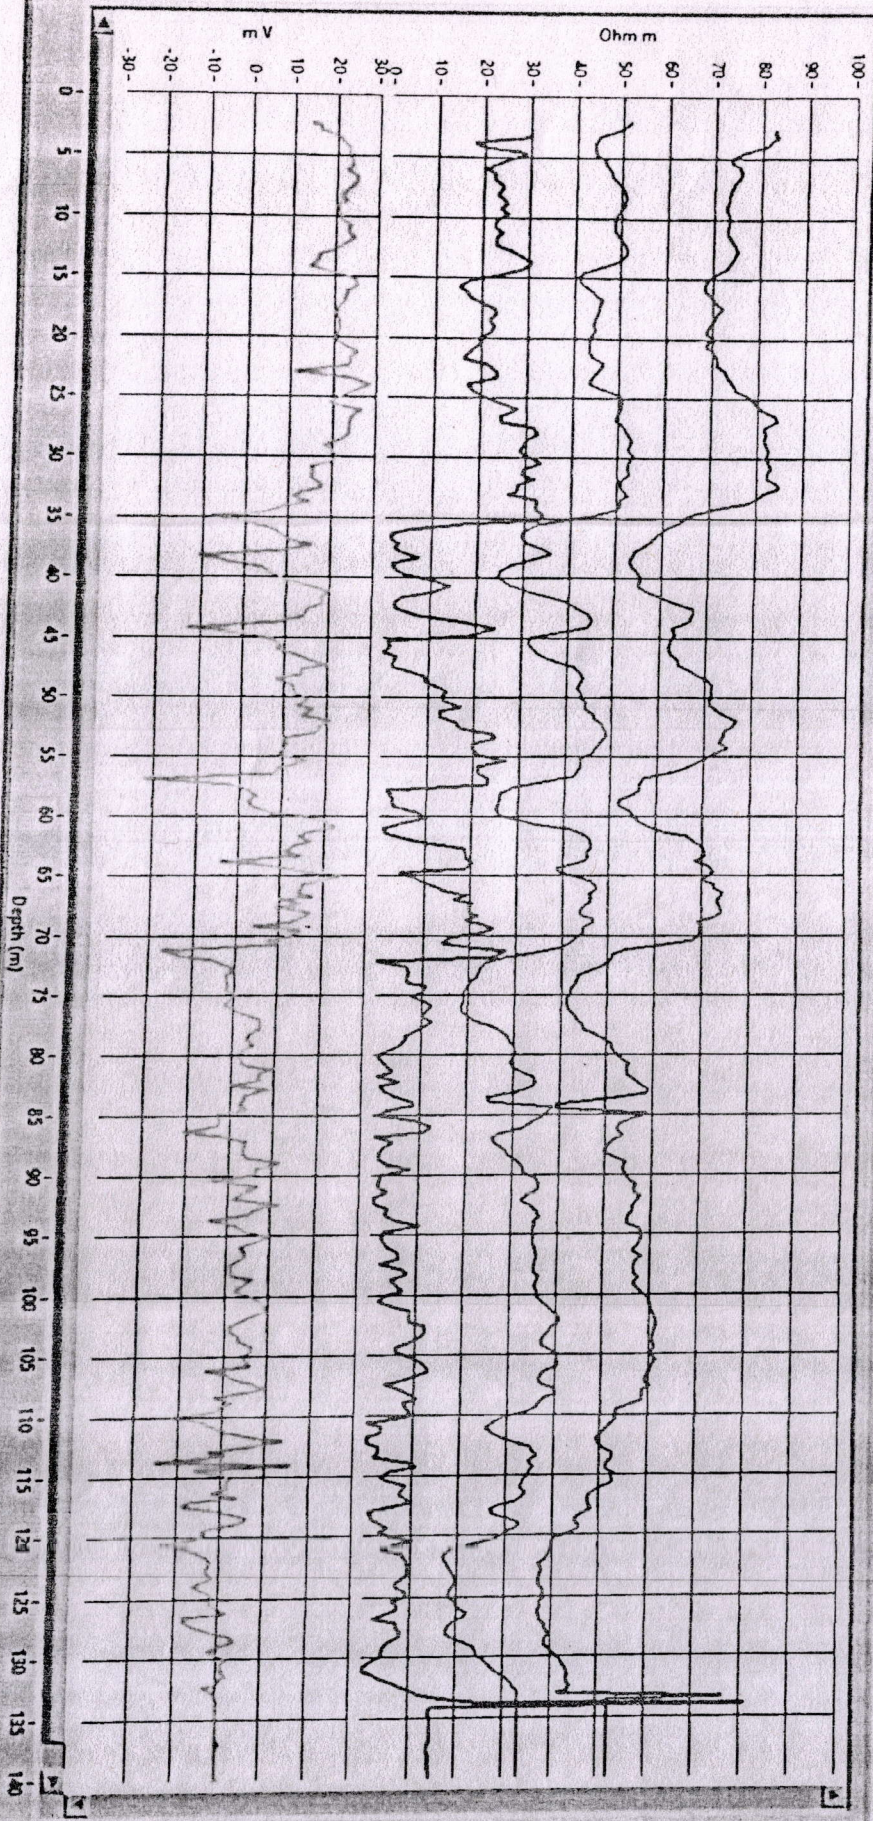 mV
Ohm m
-30
-20
-10
-0
10
20
30
0
10
20
30
40
50
60
70
80
90
100
0
5
10
15
20
25
30
35
40
45
50
55
60
65
70
75
80
85
90
95
100
105
110
115
125
130
135
140
Depth (m)